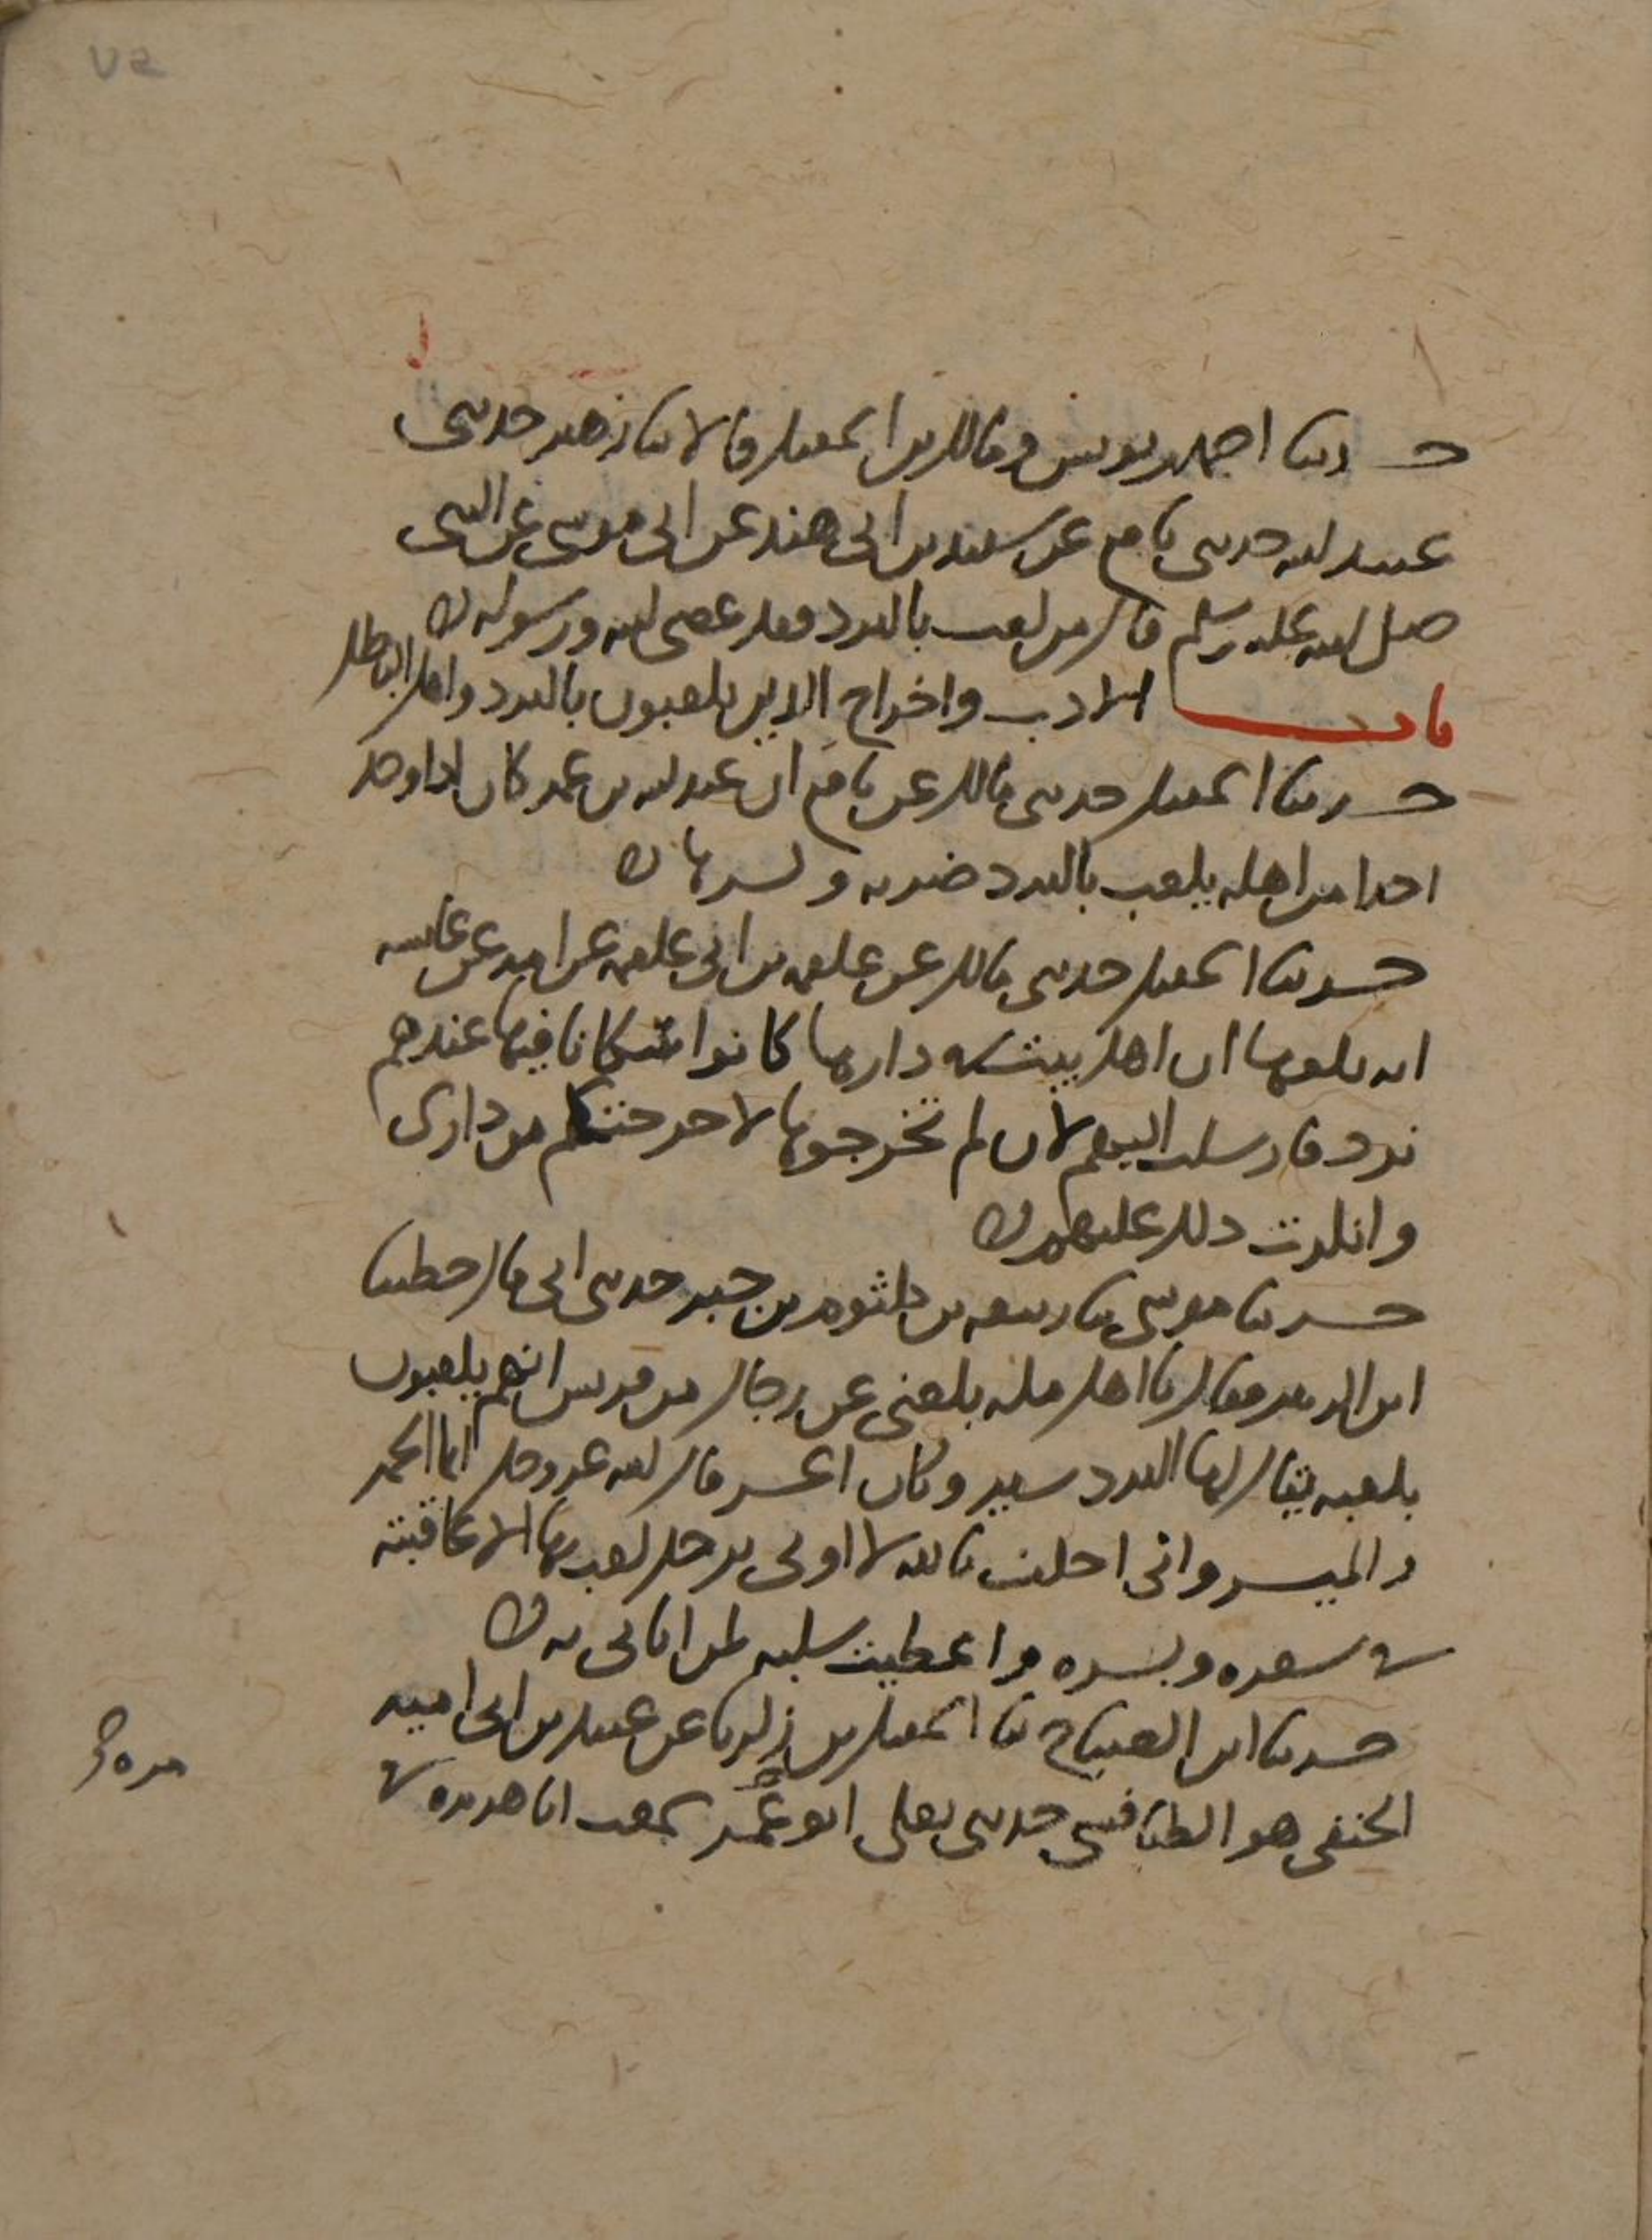 حدثنا احمد بن يونس ومالك بن اسمعيل قالا ثنا زهير حدثني
عبيد الله حدثني نافع عن سعيد بن ابي هند عن ابي موسى عن النبي
صلى الله عليه وسلم قال من لعب بالنرد فقد عصى الله ورسوله
باب الادب واخراج الذين يلعبون بالنرد واهل الباطل
حدثنا اسمعيل حدثني مالك عن نافع ان عبد الله بن عمر كان اذا وجد
احدا من اهله يلعب بالنرد ضربه وكسرها
حدثنا اسمعيل حدثني مالك عن علقمة بن ابي علقمة عن امه عن عائشة
انه بلغها ان اهل بيت في دارها كانوا سكانا فيها عندهم
نرد فارسلت اليهم لان لم تخرجوها لاخرجنكم من داري
وانكرت ذلك عليهم
حدثنا موسى ثنا ربيعة بن كلثوم بن جبر حدثني ابي قال خطبنا
ابن الزبير فقال يا اهل مكة بلغني عن رجال من قريش انهم يلعبون
بلعبة يقال لها النرد شير وكان اعسر قال الله عز وجل انما الخمر
والميسر واني احلف بالله لا اوتى برجل لعب بها الا عاقبته
في شعره وبشره واعطيت سلبه لمن اتاني به
حدثنا ابن الصباح ثنا اسمعيل بن زكريا عن عبيد بن ابي امية
الحنفي هو الطنافسي حدثني يعلى ابو عمر سمعت ابا هريرة في
مره